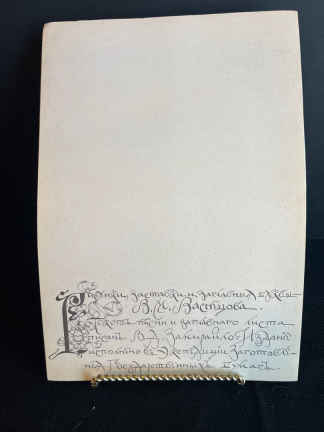 Рисунки, заставки и заглавныя буквы
В. М. Васнецова.
Текстъ пѣсни и заглавнаго листа
писалъ В. Д. Замирайло. Изданіе
исполнено въ Экспедиціи Заготовле-
нія Государственныхъ Бумагъ.